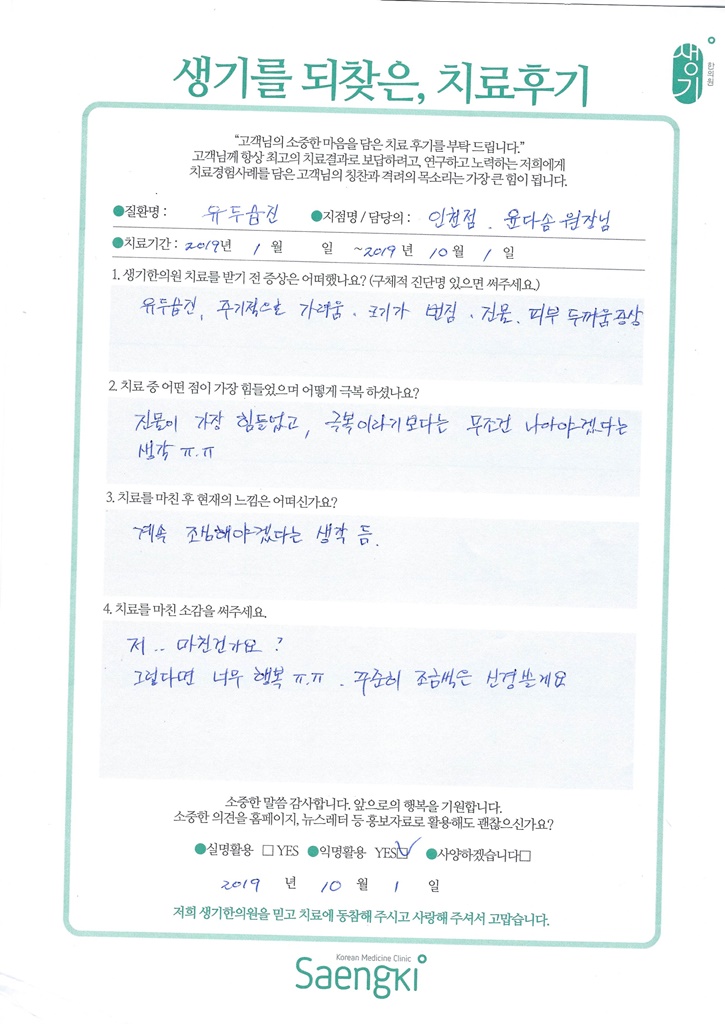 생기를 되찾은, 치료후기
생기
한의원
"고객님의 소중한 마음을 담은 치료 후기를 부탁 드립니다."
고객님께 항상 최고의 치료결과로 보답하려고, 연구하고 노력하는 저희에게
치료경험사례를 담은 고객님의 칭찬과 격려의 목소리는 가장 큰 힘이 됩니다.
●질환명 : 유두습진 ●지점명 / 담당의 : 인천점. 윤다솜 원장님
●치료기간 : 2019년 1월 일 ~2019년 10월 1일
1. 생기한의원 치료를 받기 전 증상은 어떠했나요? (구체적 진단명 있으면 써주세요.)
유두습진, 주기적으로 가려움. 크기가 번짐. 진물. 피부 두꺼움 증상
2. 치료 중 어떤 점이 가장 힘들었으며 어떻게 극복 하셨나요?
진물이 가장 힘들었고, 극복이라기보다는 무조건 나아야겠다는
생각 ㅠ.ㅠ
3. 치료를 마친 후 현재의 느낌은 어떠신가요?
계속 조심해야겠다는 생각 듬.
4. 치료를 마친 소감을 써주세요.
저.. 마친건가요?
그렇다면 너무 행복 ㅠ.ㅠ. 꾸준히 조금씩은 신경쓸게요
소중한 말씀 감사합니다. 앞으로의 행복을 기원합니다.
소중한 의견을 홈페이지, 뉴스레터 등 홍보자료로 활용해도 괜찮으신가요?
●실명활용 □YES ●익명활용 YES☑ ●사양하겠습니다□
2019 년 10 월 1 일
저희 생기한의원을 믿고 치료에 동참해 주시고 사랑해 주셔서 고맙습니다.
Korean Medicine Clinic
SaengKi